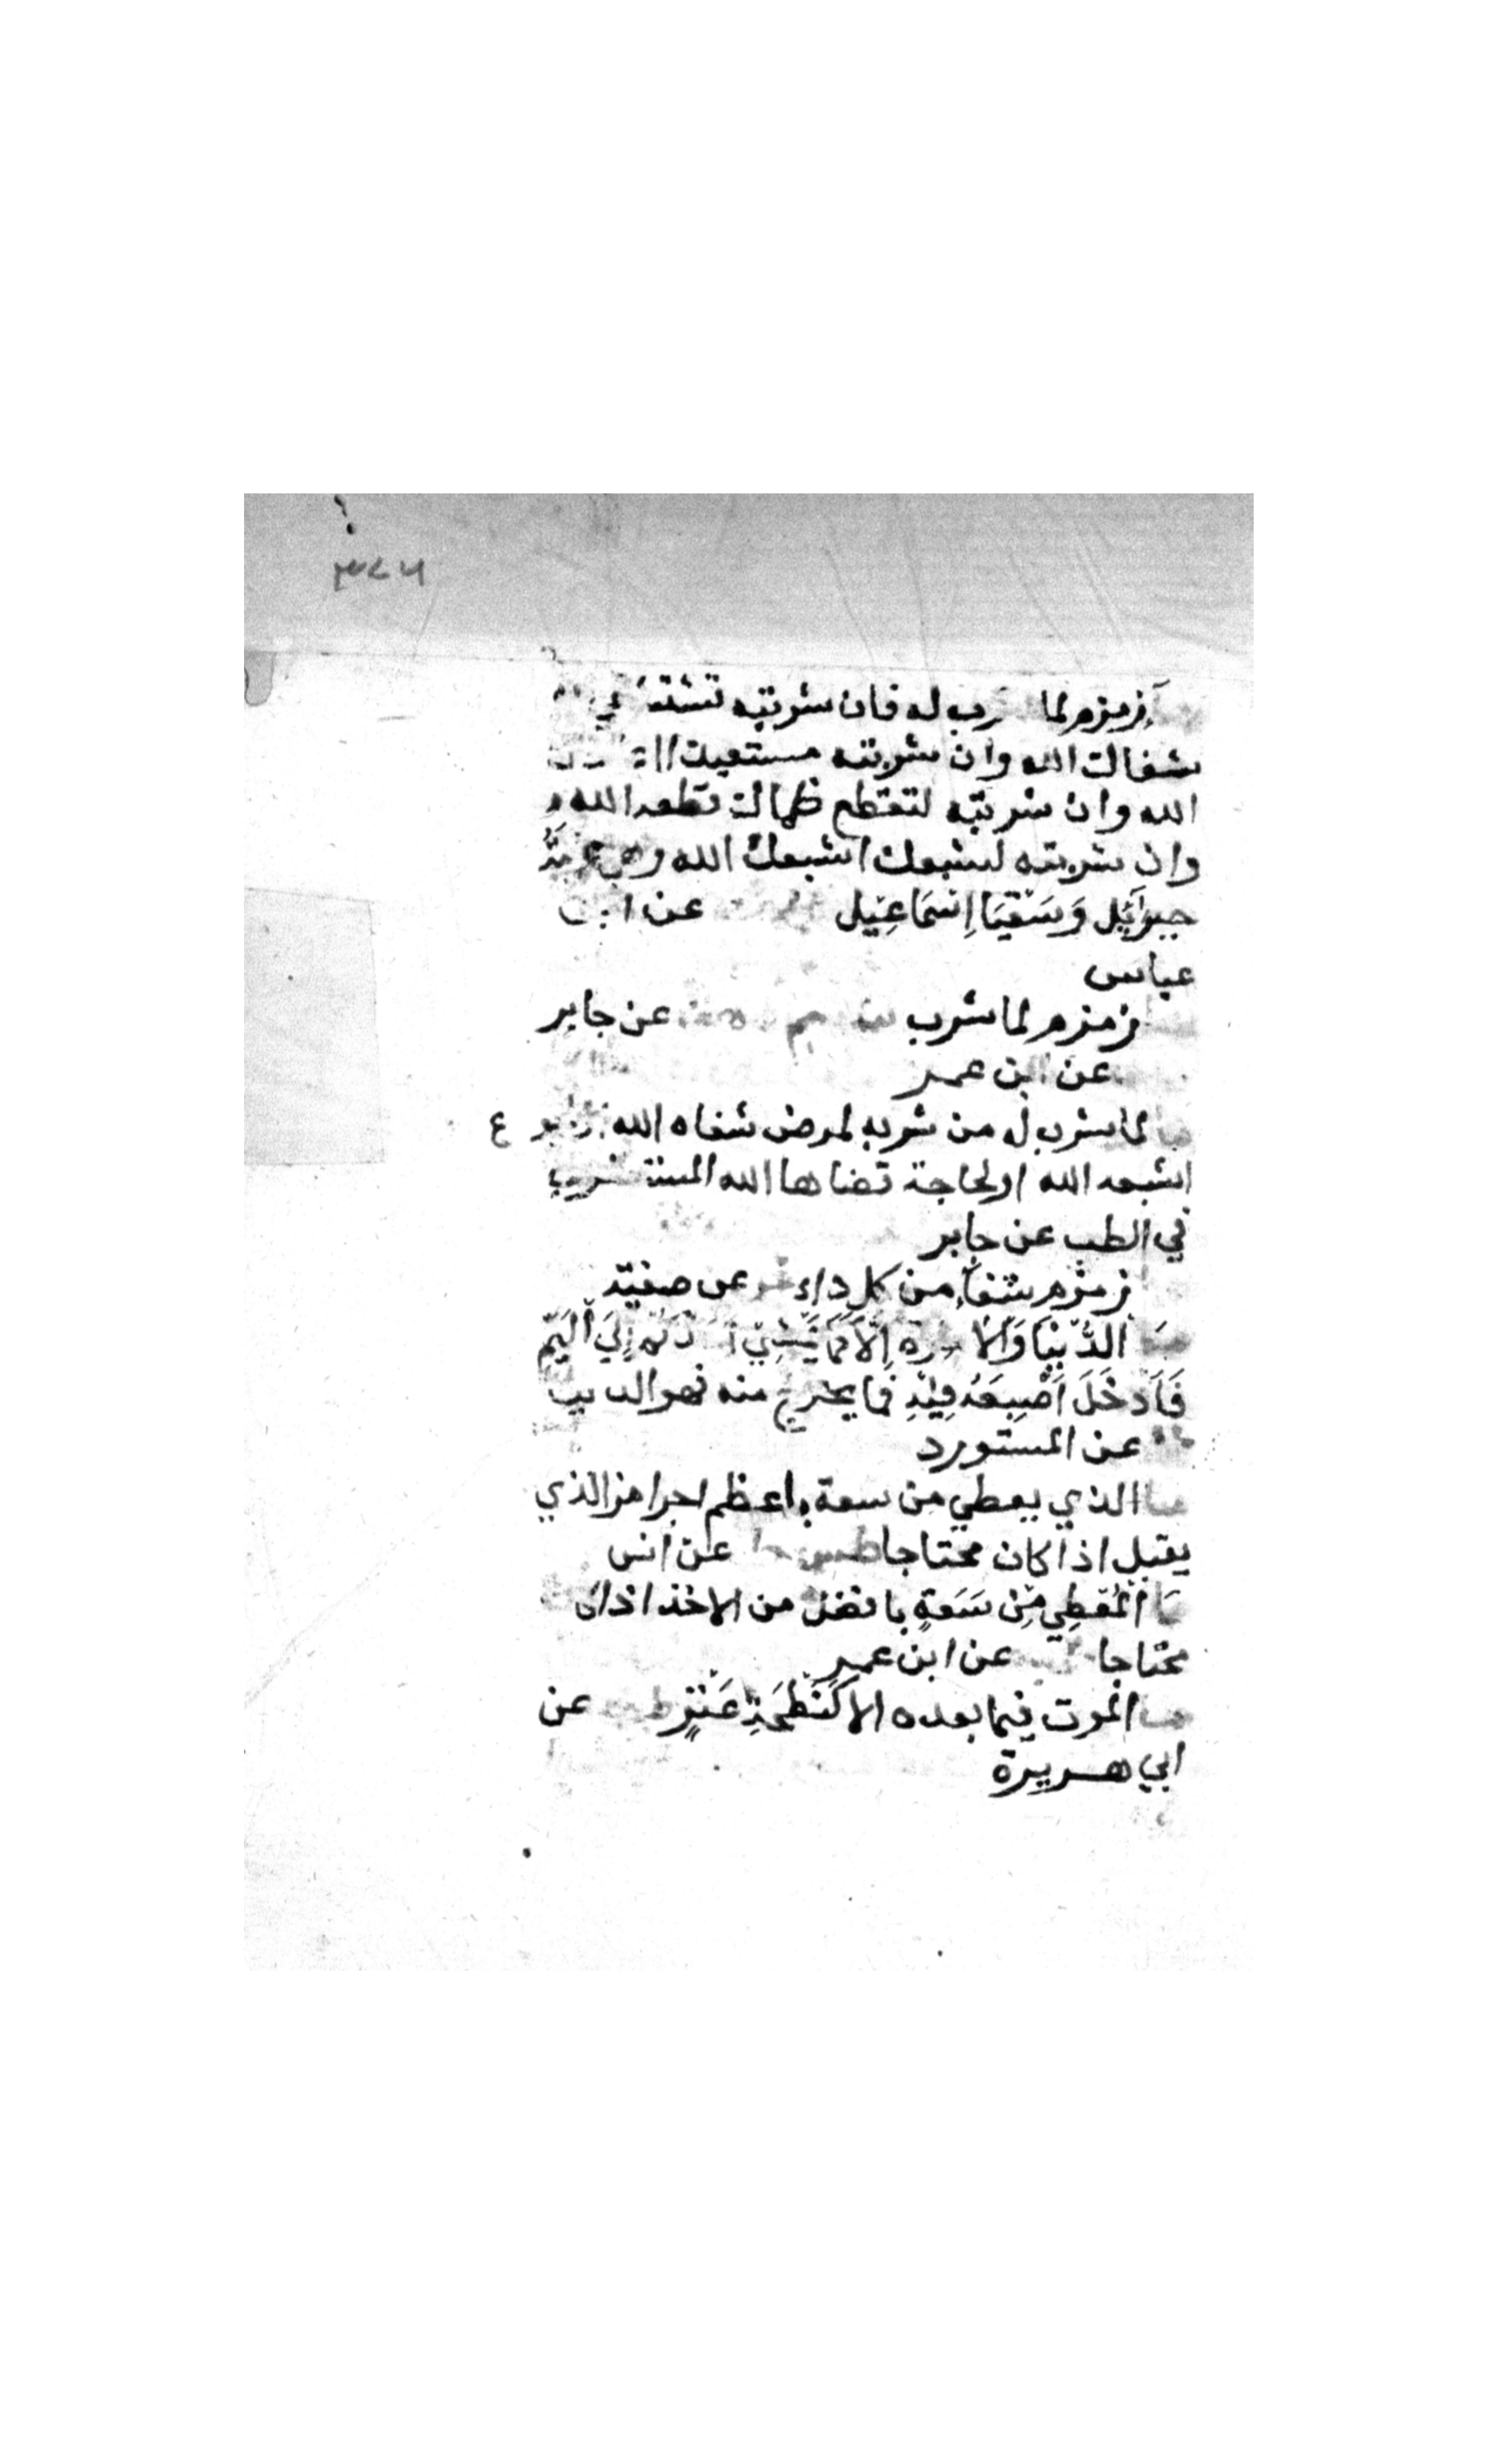 ٣٧٦
زمزم لما رب له فان شربته تشتفي
شفاك الله وان شربته مستعيذا
الله وان شربته لتقطع ظماك قطعه الله
وان شربته لشبعك اشبعك الله وهي
جبرآئيل وَسَقْيَا اِسْمَاعِيْل عن ابن
عباس
زمزم لما شرب عن جابر
عن ابن عمر
لما شرب له من شربه لمرض شفاه الله
اشبعه الله او لحاجة قضاها الله المستغفري
في الطب عن جابر
زمزم شفآء من كل داء عن صفية
الدُّنْيَا وَالاخرة اِلاَّ كَمَا يَمْشِيْ اِلَيَ اَلْيَمِّ
فَاَدْخَلَ اَصْبِعَهُ فِيْهِ فما يخرج منه فهو الدنيا
عن المستورد
الذي يعطي من سعة باعظم اجرا من الذي
يقبل اذا كان محتاجا عن انس
اَلْمُعْطِي مِنْ سَعَةٍ بافضل من الاخذ اذا كان
محتاجا عن ابن عمر
الموت فيما بعده الا كَنَطْحَةِ عَنْزٍ عن
ابي هريرة